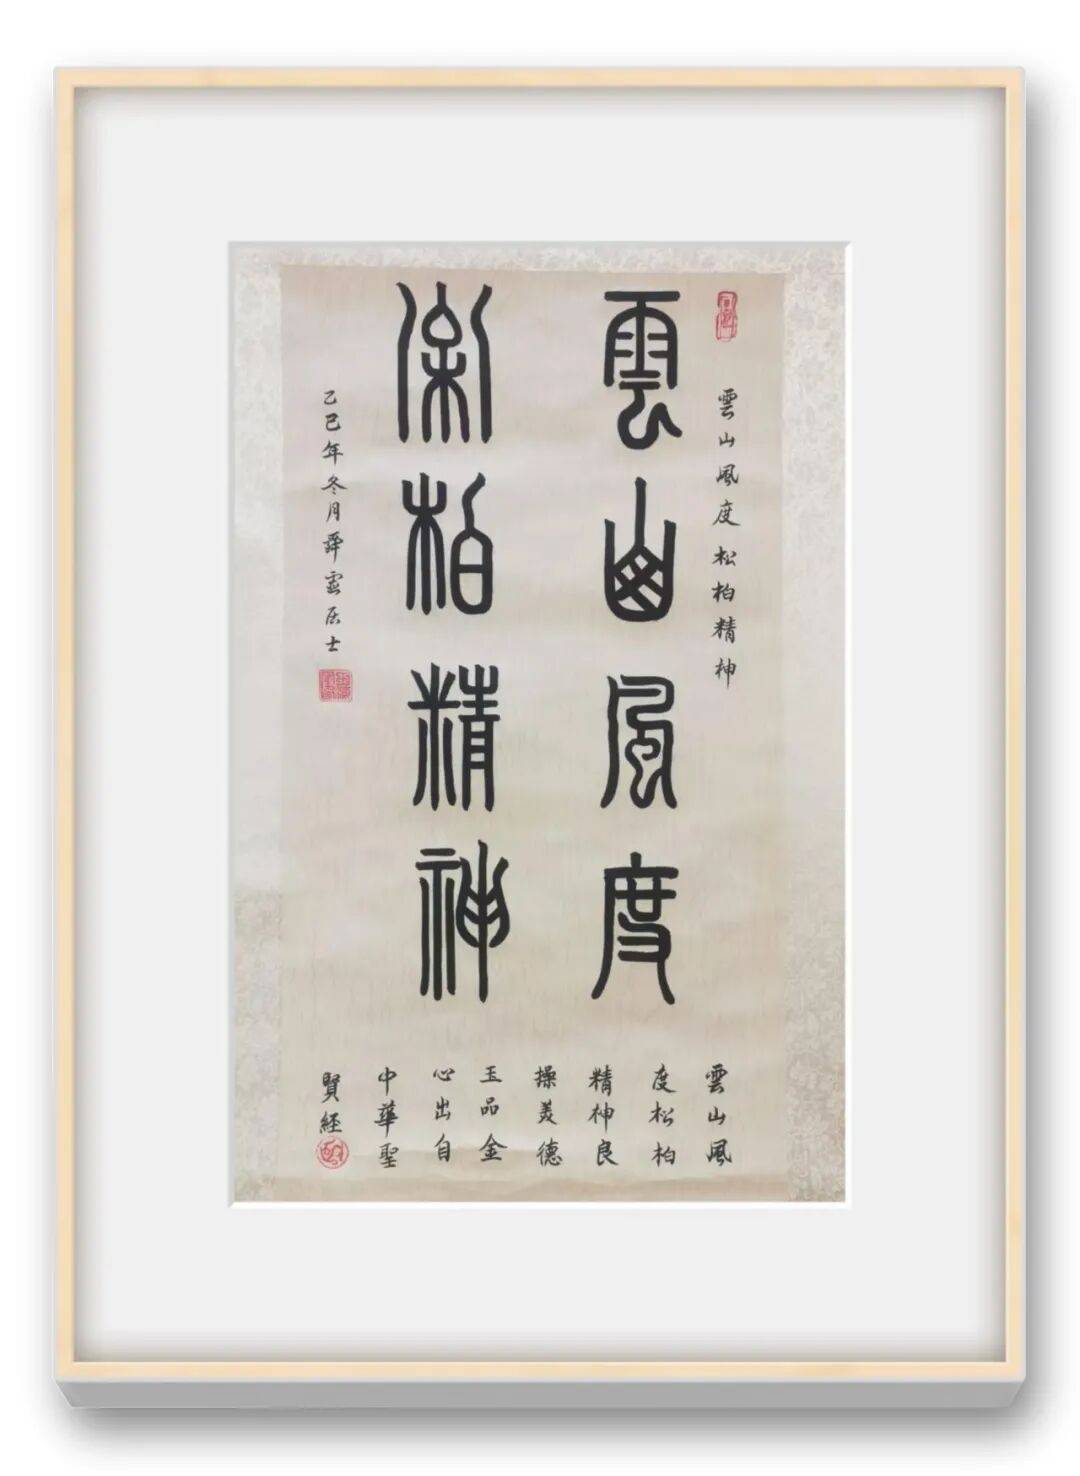 雲山風度 松柏精神
雲山風度
松柏精神
乙巳年冬月舜居士
雲山風
度松柏
精神良
操美德
玉品金
心出自
中華聖
賢經